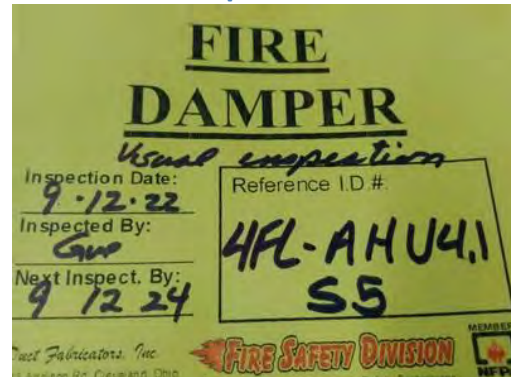 FIRE
DAMPER
Visual inspection
Inspection Date:
9·12·22
Inspected By:
Next Inspect. By:
9 12 24
Reference I.D.#:
4FL-AHU4.1
S5
Duct Fabricators, Inc.
Rd. Cleveland, Ohio
FIRE SAFETY DIVISION
MEMBER
NFPA